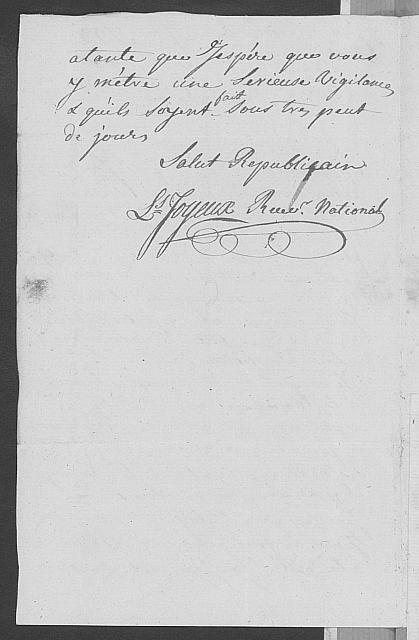 atante que J'espére que vous
y métre une Serieuse Vigilance
& qu'ils Soyent fait Sous tres peut
de jours
Salut Republicain
Ls. Joyeux Recevr. National